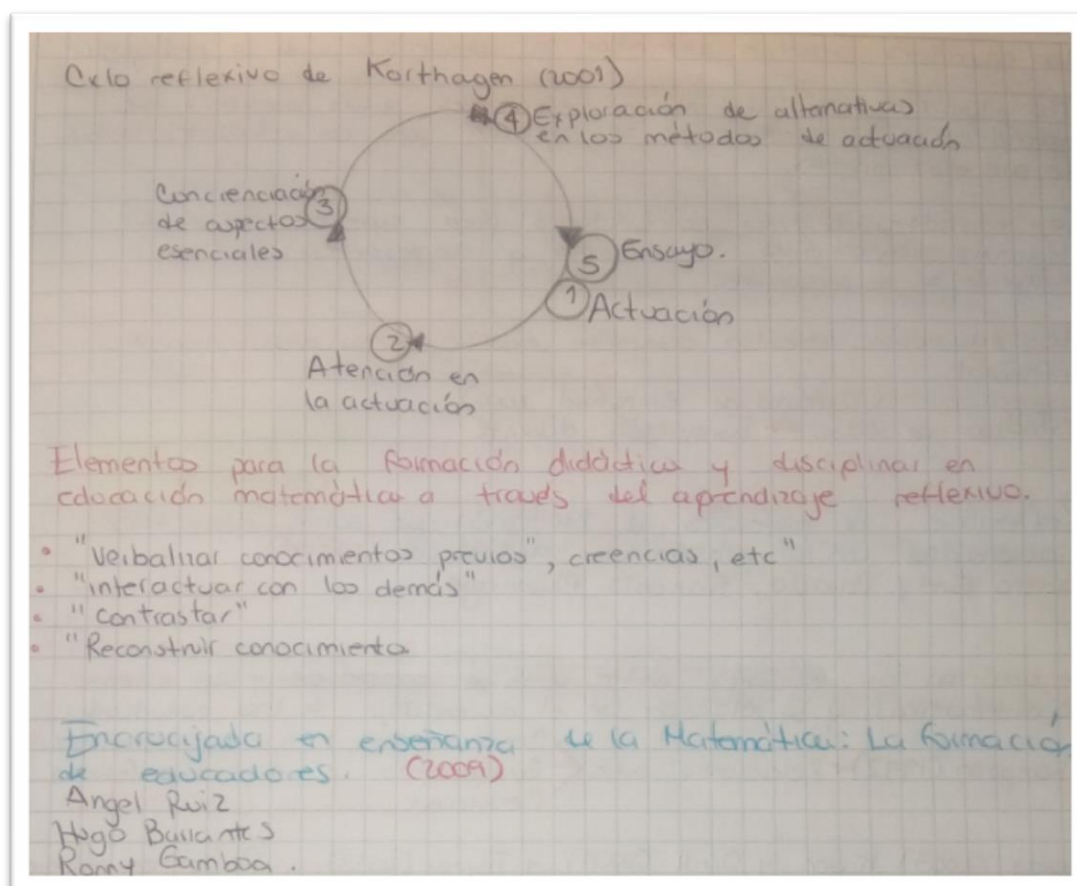 Ciclo reflexivo de Korthagen (2001)
④ Exploración de alternativas
en los métodos de actuación
Concienciación
de aspectos
esenciales
③
⑤ Ensayo.
① Actuación
②
Atención en
la actuación
Elementos para la formación didáctica y disciplinar en
educación matemática a través del aprendizaje reflexivo.
• "Verbalizar conocimientos previos", creencias, etc"
• "interactuar con los demás"
• "contrastar"
• "Reconstruir conocimiento
Encrucijada en enseñanza de la Matemática: La formación
de educadores. (2009)
Angel Ruiz
Hugo Barrantes
Ronny Gamboa.